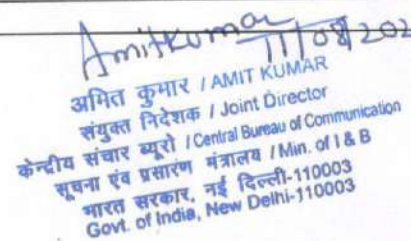 Amitkumar
11/08/202
अमित कुमार / AMIT KUMAR
संयुक्त निदेशक / Joint Director
केन्द्रीय संचार ब्यूरो / Central Bureau of Communication
सूचना एवं प्रसारण मंत्रालय / Min. of I & B
भारत सरकार, नई दिल्ली-110003
Govt. of India, New Delhi-110003